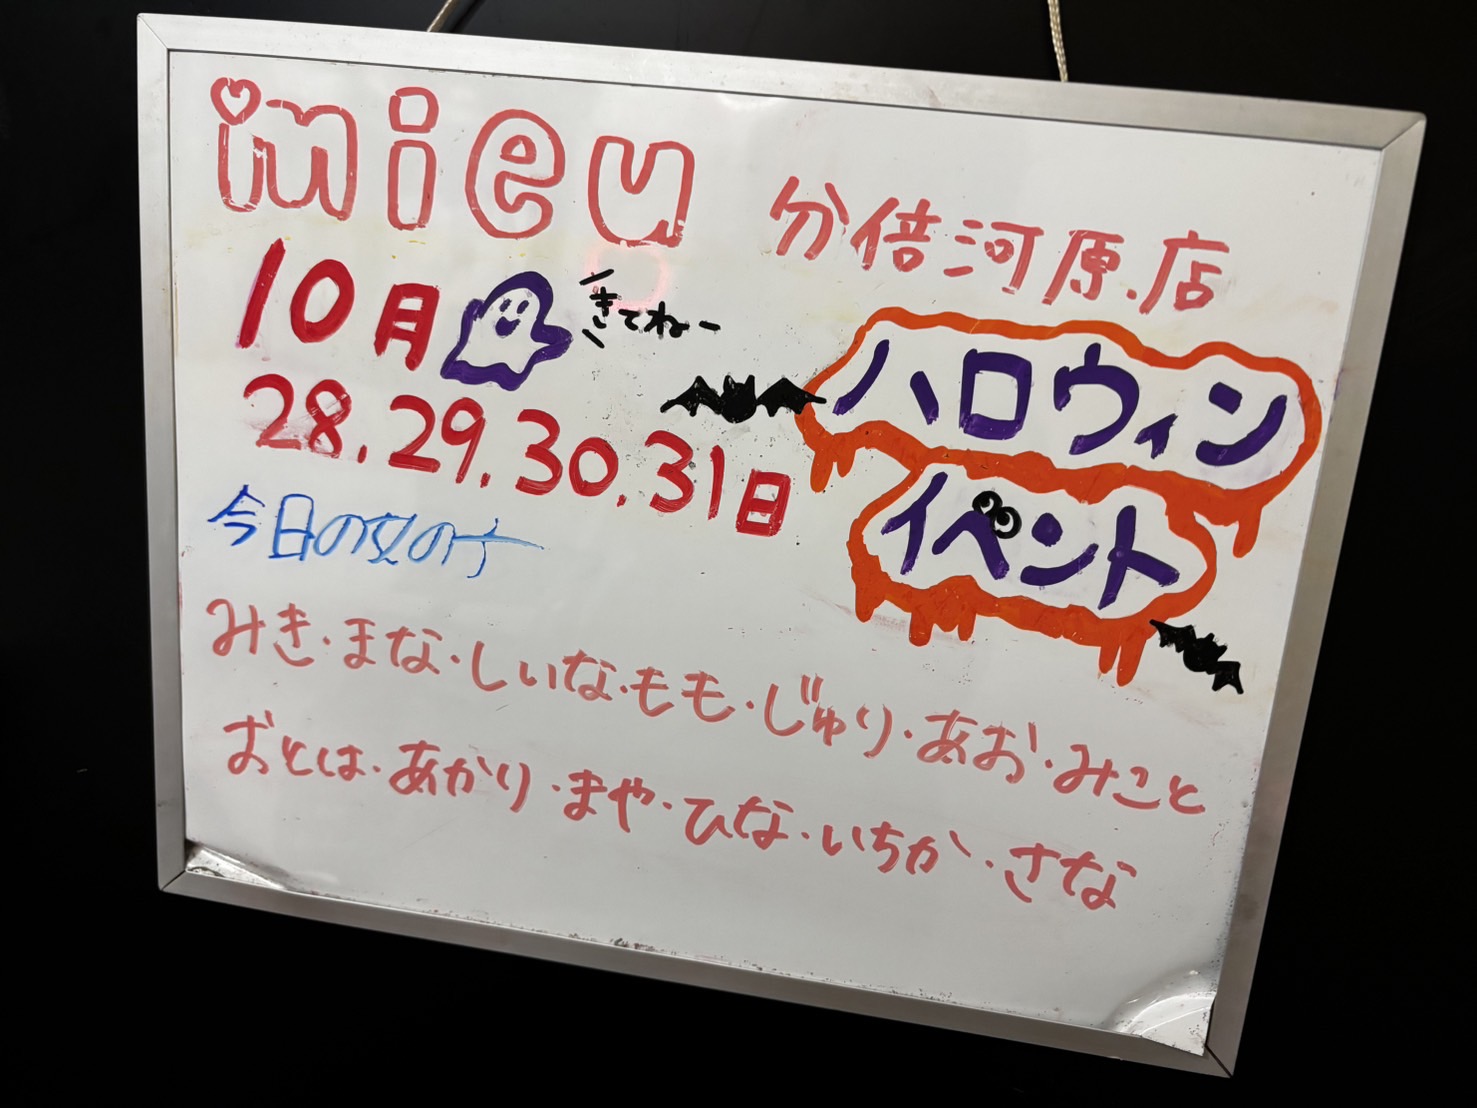 mieu 分倍河原店
10月 きてねー
28.29.30.31日
ハロウィン
イベント
今日の女の子
みき・まな・しいな・もも・じゅり・あお・みこと
おとは・あかり・まや・ひな・いちか・さな